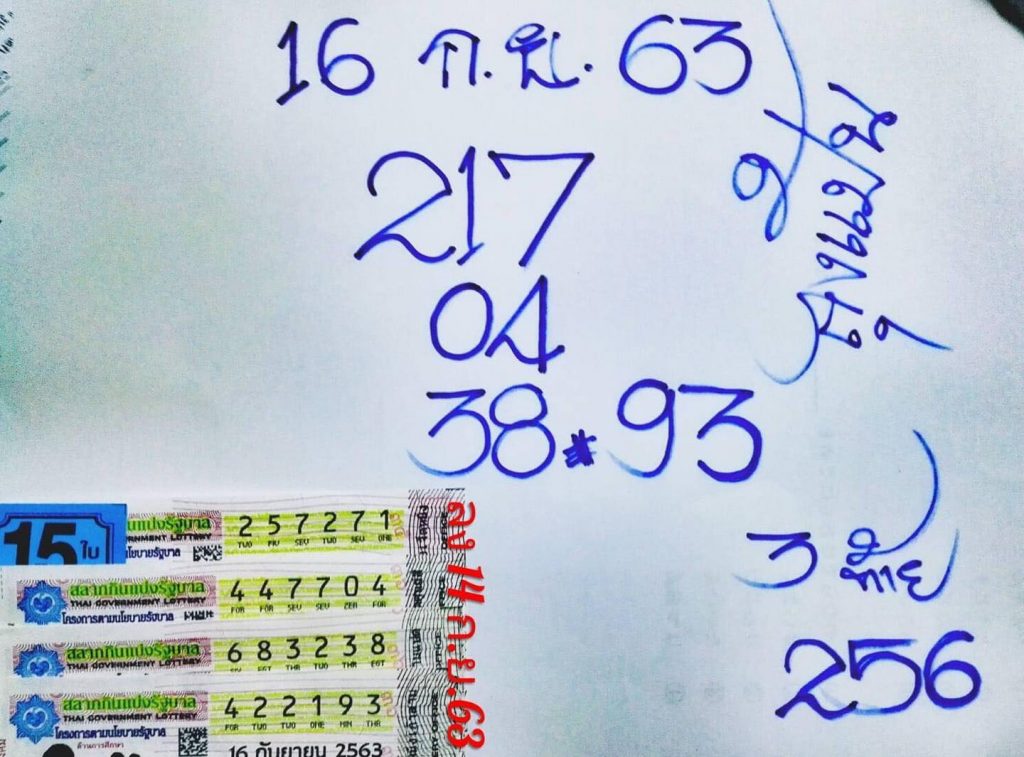 16 ก.ย. 63
217
04
38*93
ขุนแผน
3 ท้าย
256
ลง 14 ก.ย.63
15 ใบ
ินแบ่งรัฐบาล
257271
TWO FIV SEV TWO SEV ONE
นโยบายรัฐบาล
สลากกินแบ่งรัฐบาล
THAI GOVERNMENT LOTTERY
447704
FOR FOR SEV SEV ZER FOR
โครงการตามนโยบายรัฐบาล
สลากกินแบ่งรัฐบาล
THAI GOVERNMENT LOTTERY
683238
SIX EGT THR TWO THR EGT
สลากกินแบ่งรัฐบาล
THAI GOVERNMENT LOTTERY
422193
FOR TWO TWO ONE NIN THR
โครงการตามนโยบายรัฐบาล
ด้านการศึกษา
16 กันยายน 2563